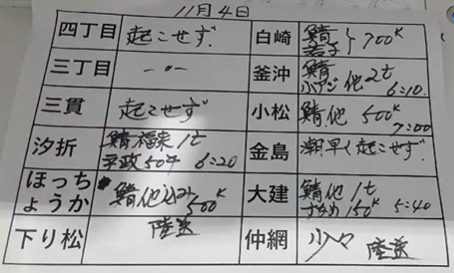 11月4日
四丁目 起こせず 白崎 鯖 700K
三丁目 〃 釜沖 鯖
小アジ 他 2t 6:10
三貫 起こせず 小松 鯖他 500K
7:00
汐折 鯖 1t 金島 潮早く起こせず
504 6:20
ほっち 鯖他 大建 鯖他 1t
ょうか 500K 150K 5:40
下り松 陸送 仲網 少々 陸送